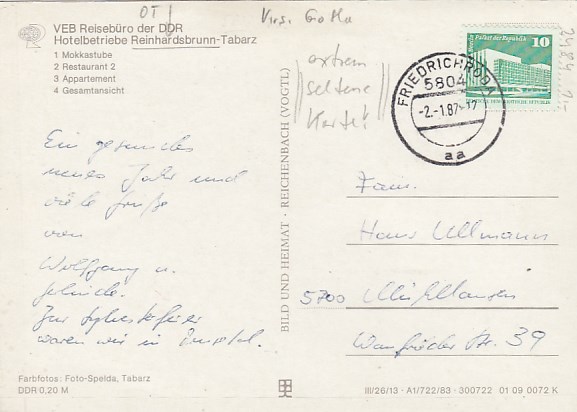 OT
Krs. Gotha
VEB Reisebüro der DDR
Hotelbetriebe Reinhardsbrunn-Tabarz
1 Mokkastube
2 Restaurant 2
3 Appartement
4 Gesamtansicht
extrem
seltene
Karte!
FRIEDRICHRODA
5804
-2.-1.87-17
aa
Palast der Republik 10
Ein gesundes
neues Jahr und
viele Grüße
von
Wolfgang u.
Zur Silvesterfeier
waren wir in
BILD UND HEIMAT · REICHENBACH (VOGTL)
Fam.
Hans Ullmann
5700 Mühlhausen
Wanfrieder Str. 39
Farbfotos: Foto-Spelda, Tabarz
DDR 0,20 M
III/26/13 · A1/722/83 · 300722 01 09 0072 K